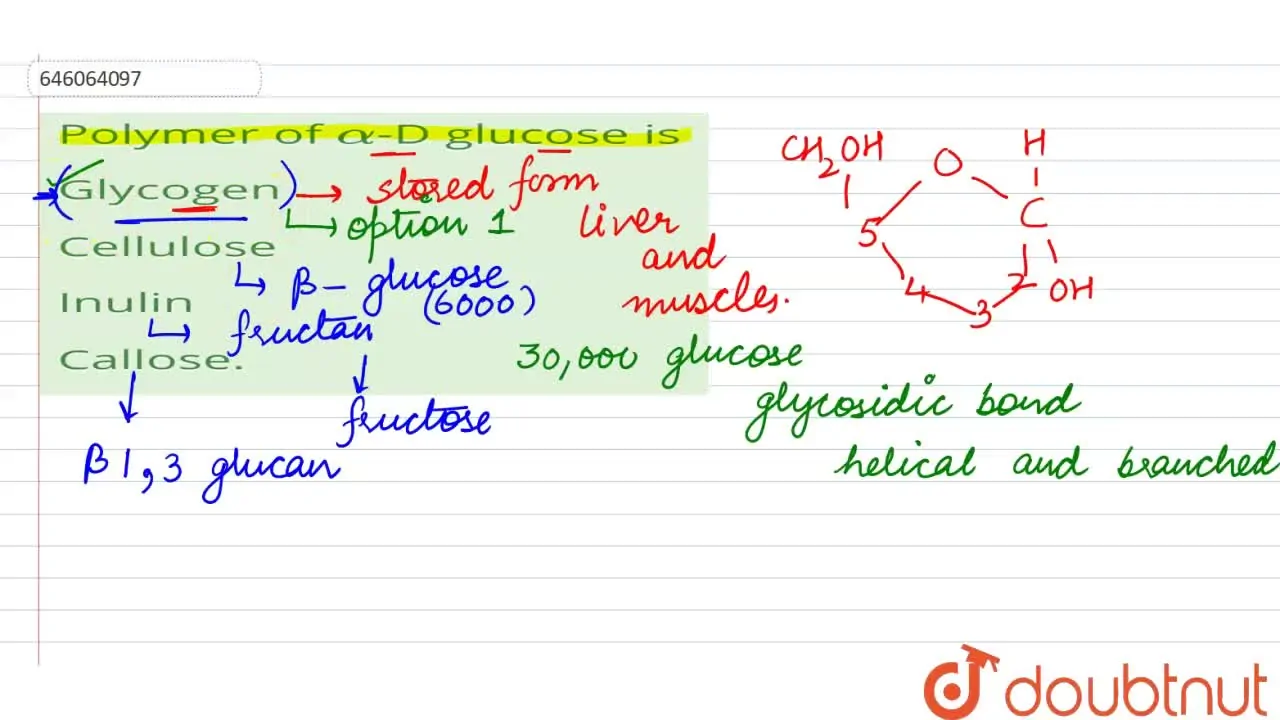 646064097
Polymer of α-D glucose is
(Glycogen) → stored form
↳ option 1
liver
and
muscles.
Cellulose
↳ β- glucose
(6000)
Inulin
↳ fructan
fructose
Callose.
β 1,3 glucan
30,000 glucose
glycosidic bond
helical and branched
CH2OH
O
H
C
5
4
3
2
OH
doubtnut